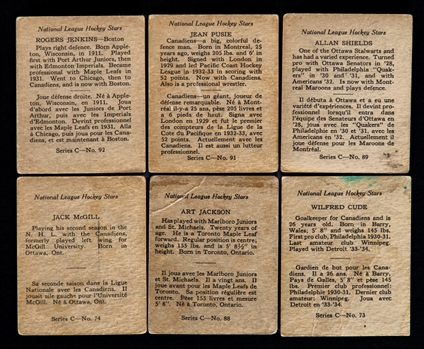 National League Hockey Stars
ROGERS JENKINS—Boston
Plays right defence. Born Apple-
ton, Wisconsin, in 1911. Played
first with Port Arthur Juniors, then
with Edmonton Imperials. Became
professional with Maple Leafs in
1931. Went to Chicago, then to
Canadiens, and is now with Boston.
Joue défense droite. Né à Apple-
ton, Wisconsin, en 1911. Joua
d'abord avec les Juniors de Port
Arthur, puis avec les Imperials
d'Edmonton. Devint professionnel
avec les Maple Leafs en 1931. Alla
à Chicago, puis joua pour les Cana-
diens, et est maintenant à Boston.
Series C—No. 92
National League Hockey Stars
JEAN PUSIE
Canadiens—a big, colorful de-
fence man. Born in Montreal, 25
years ago, weighs 205 lbs. and 6' in
height. Signed with London in
1929 and led Pacific Coast Hockey
League in 1932-33 in scoring with
52 points. Now with Canadiens.
Also is a professional wrestler.
Canadiens—un géant, joueur de
défense remarquable. Né à Mont-
réal il-y-a 25 ans, pèse 205 livres et
a 6 pieds de haut. Signa avec
London en 1929 et fut le premier
des compteurs de la Ligue de la
Côte du Pacifique en 1932-33, avec
52 points. Actuellement avec les
Canadiens. Il est aussi un lutteur
professionnel.
Series C—No. 91
National League Hockey Stars
ALLAN SHIELDS
One of the Ottawa Stalwarts and
has had a varied experience. Turned
pro with Ottawa Senators in '28,
played with Philadelphia "Quak-
ers" in '30 and '31, and with
Americans '32. Is now with Mont-
real Maroons and plays defence.
Il débuta à Ottawa et a eu une
variété d'expériences. Il devint pro-
fessionnel lorsqu'il entra dans
l'équipe des Senateurs d'Ottawa en
'28, joua avec les "Quakers" de
Philadelphie en '30 et '31, avec les
Americans en '32. Actuellement il
joue défense pour les Maroons de
Montréal.
Series C—No. 89
National League Hockey Stars
JACK McGILL
Playing his second season in the
N. H. L. with the Canadiens,
formerly played left wing for
McGill University. Born in
Ottawa, Ont.
Sa seconde saison dans la Ligue
Nationale avec les Canadiens. Il
jouait aile gauche pour l'Université
McGill. Né à Ottawa, Ont.
Series C—No. 74
National League Hockey Stars
ART JACKSON
Has played with Marlboro Juniors
and St. Michaels. Twenty years of
age. He is a Toronto Maple Leaf
forward. Regular position is centre;
weighs 155 lbs. and is 5' 8½" in
height. Born in Toronto, Ontario.
Il joue avec les Marlboro Juniors
et St. Michaels. Il a vingt ans. Il
joue avant pour les Maple Leafs de
Toronto. Sa position régulière est
centre. Pèse 155 livres et mesure
5' 8". Né à Toronto, Ontario.
Series C—No. 88
National League Hockey Stars
WILFRED CUDE
Goalkeeper for Canadiens and is
26 years old. Born in Barry,
Wales; 5' 8" and weighs 145 lbs.
First pro club, Philadelphia 1930-31.
Last amateur club Winnipeg.
Played with Detroit '33-'34.
Gardien de but pour les Cana-
diens. Il a 26 ans. Né à Barry,
Pays de Galles, 5' 8" et pèse 145
lbs. Premier club professionnel:
Philadelphie, 1930-31. Dernier club
amateur: Winnipeg. Joua avec
Detroit en '33-'34.
Series C—No. 73